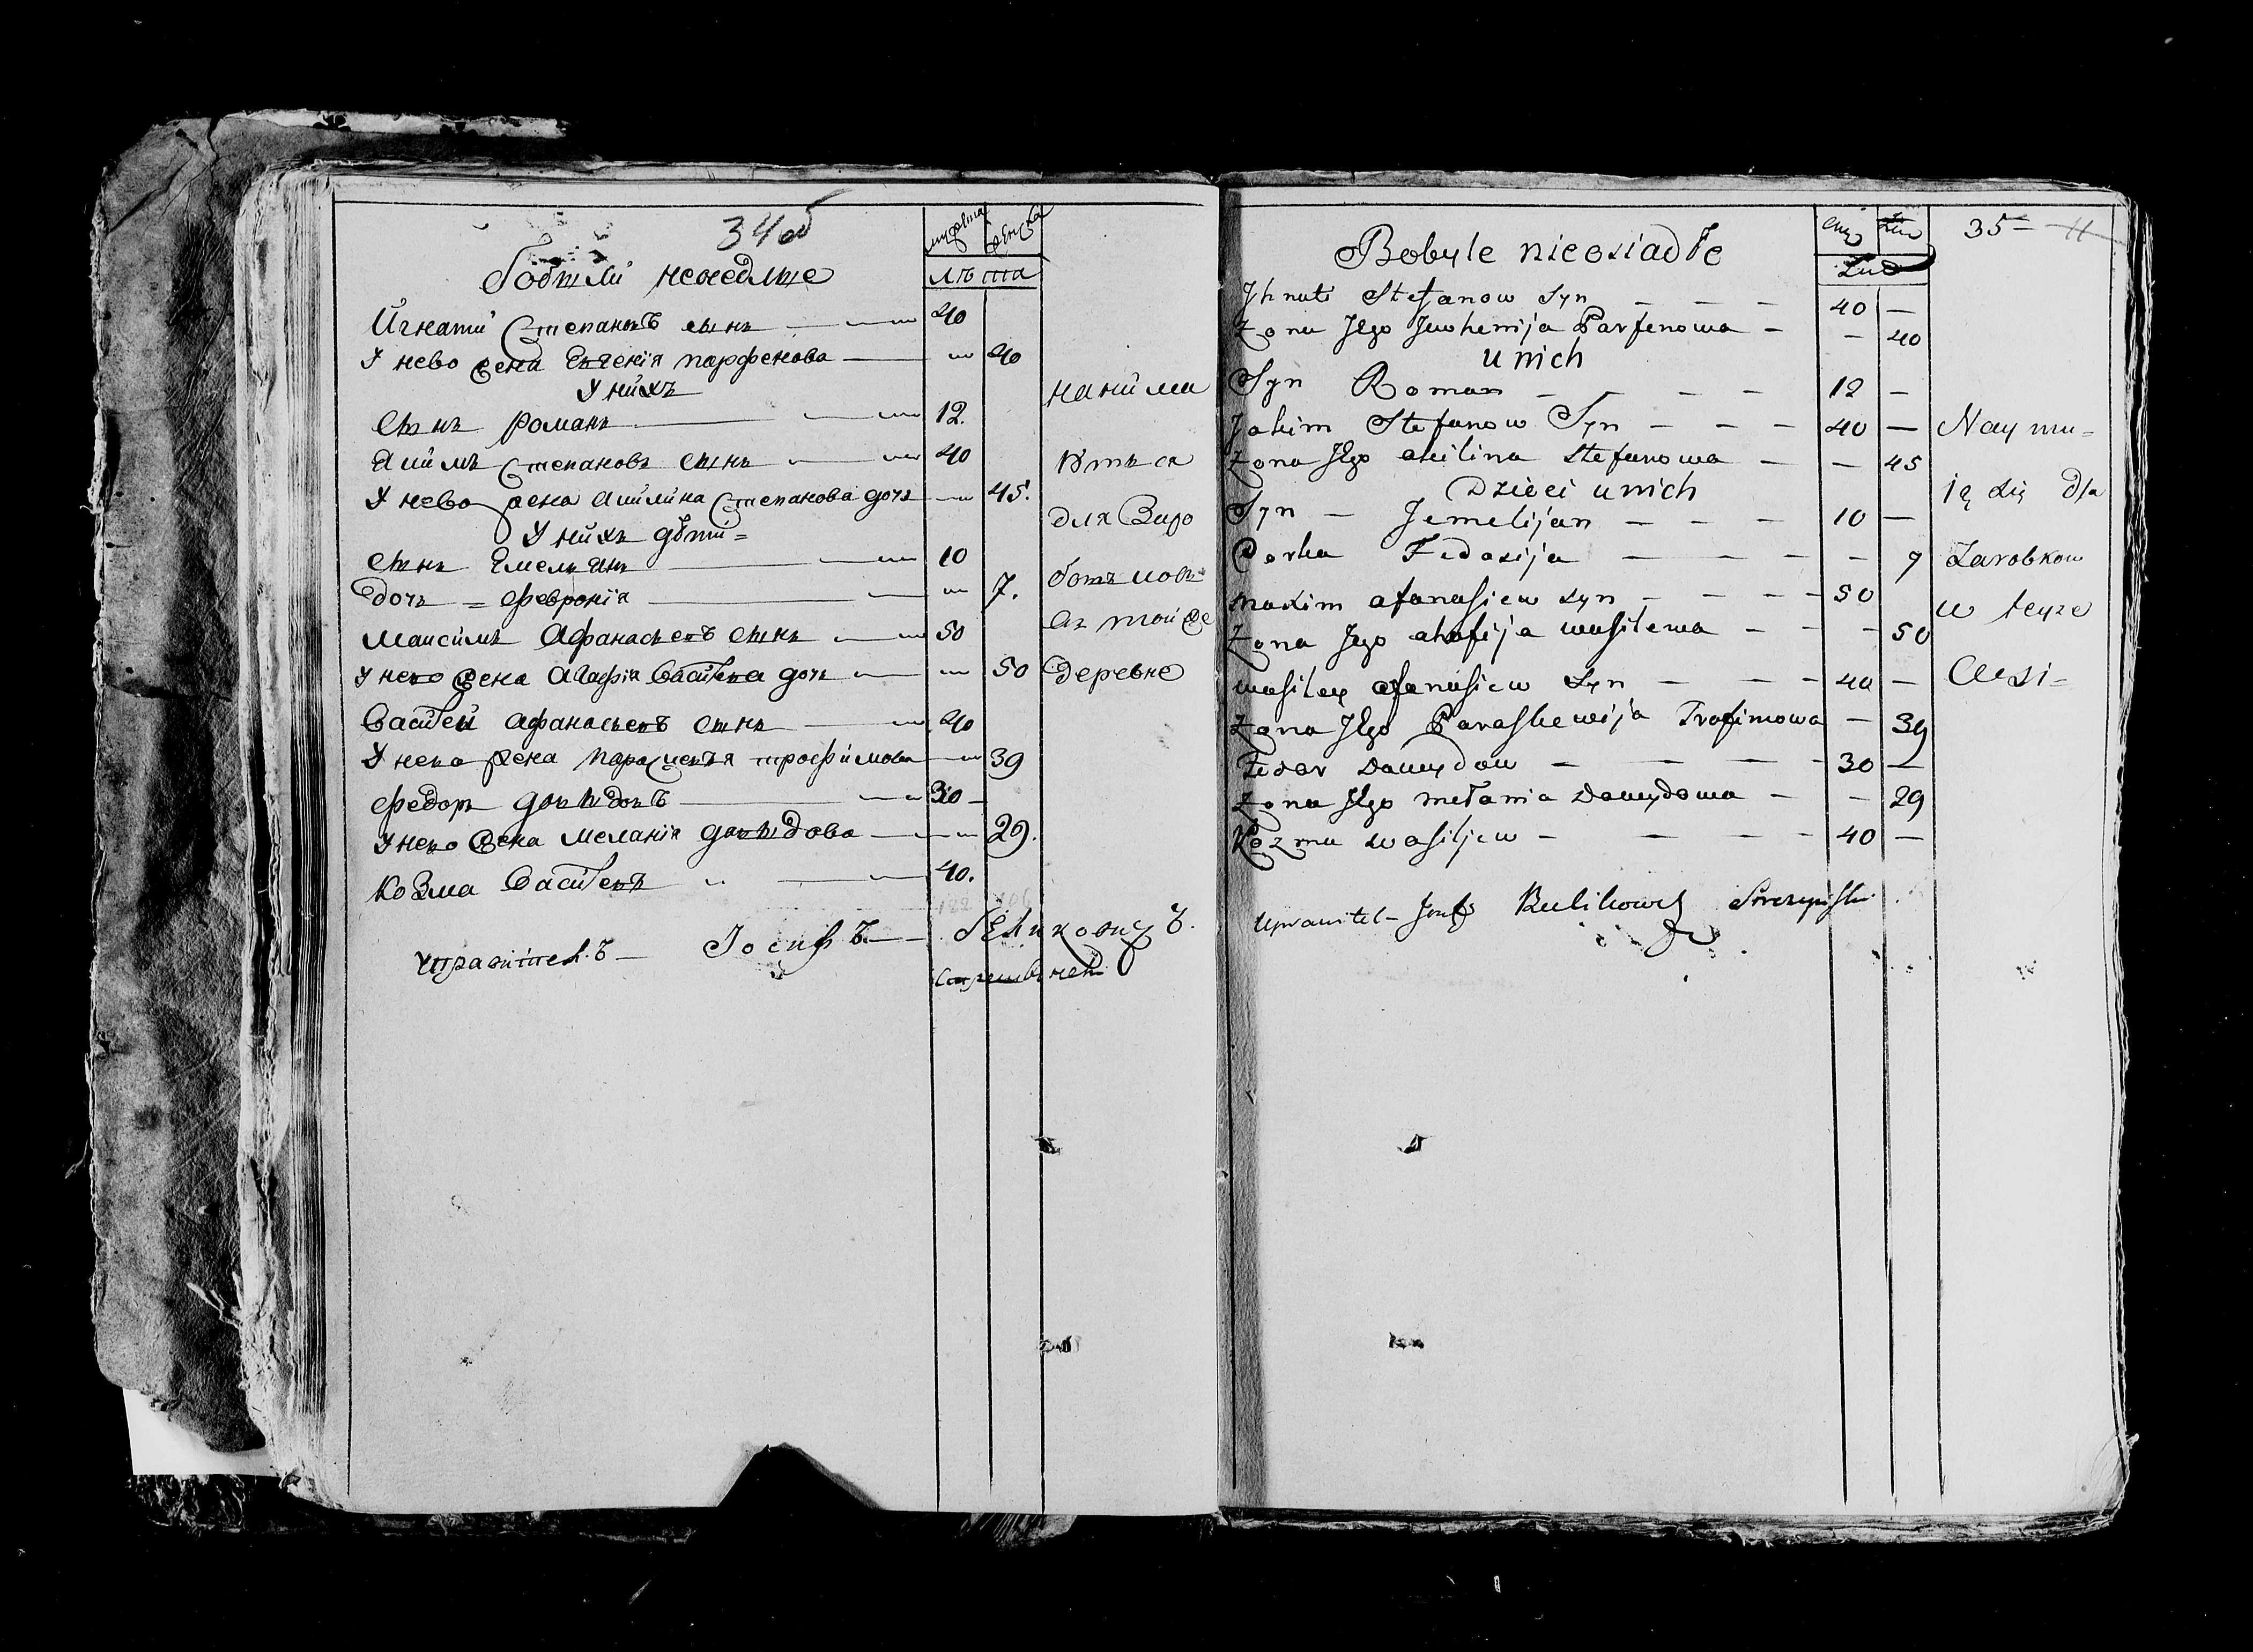 34об
Бобыли неседлые
мужеска женска
лѣта
Игнатий Степановъ сынъ 40
У нево жена Евгения парфенова 40
У нихъ
сынъ романъ 12.
Акимъ Степановъ сынъ 40
У нево жена Акилина Степанова дочь 45.
У нихъ дѣти
сынъ Емельянъ 10
дочь = Феврония 7.
Максимъ Афанасьевъ сынъ 50
У нево жена Агафия Василева дочь 50
Василей Афанасьевъ сынъ 40
У нево жена Парасковья трофимова 39
Федоръ давыдовъ 30
У нево жена Мелания давыдова 29.
Козма Василевъ 40.
нанима
ютъся
для Зара
ботъков
въ той же
деревне
управитель Іосифъ Буликовичъ
35 11
Bobyle nieosiadłe
Męz Zen
Lud
Jhnati Stefanow Syn 40 —
Zona Jego Jewhenija Parfenowa — 40
u nich
Syn Roman 12 —
Jakim Stefanow Syn 40 —
Zona Jego akilina Stefanowa — 45
Dzieci u nich
Syn — Jemelijan 10 —
Corka Fedosija — 7
maxim afanasiew syn 50
Zona Jego ahafija wasilewa — 50
wasiley afanasiew Syn 40 —
Zona Jego Paraskewija Trofimowa — 39
Fedor Dawydow 30 —
Zona Jego mełania Dawydowa — 29
Kozma wasiljew 40 —
Nay mu=
ją się dla
Zarobkow
w teyze
Wsi=
Uprawitel Jozef Bulikowicz